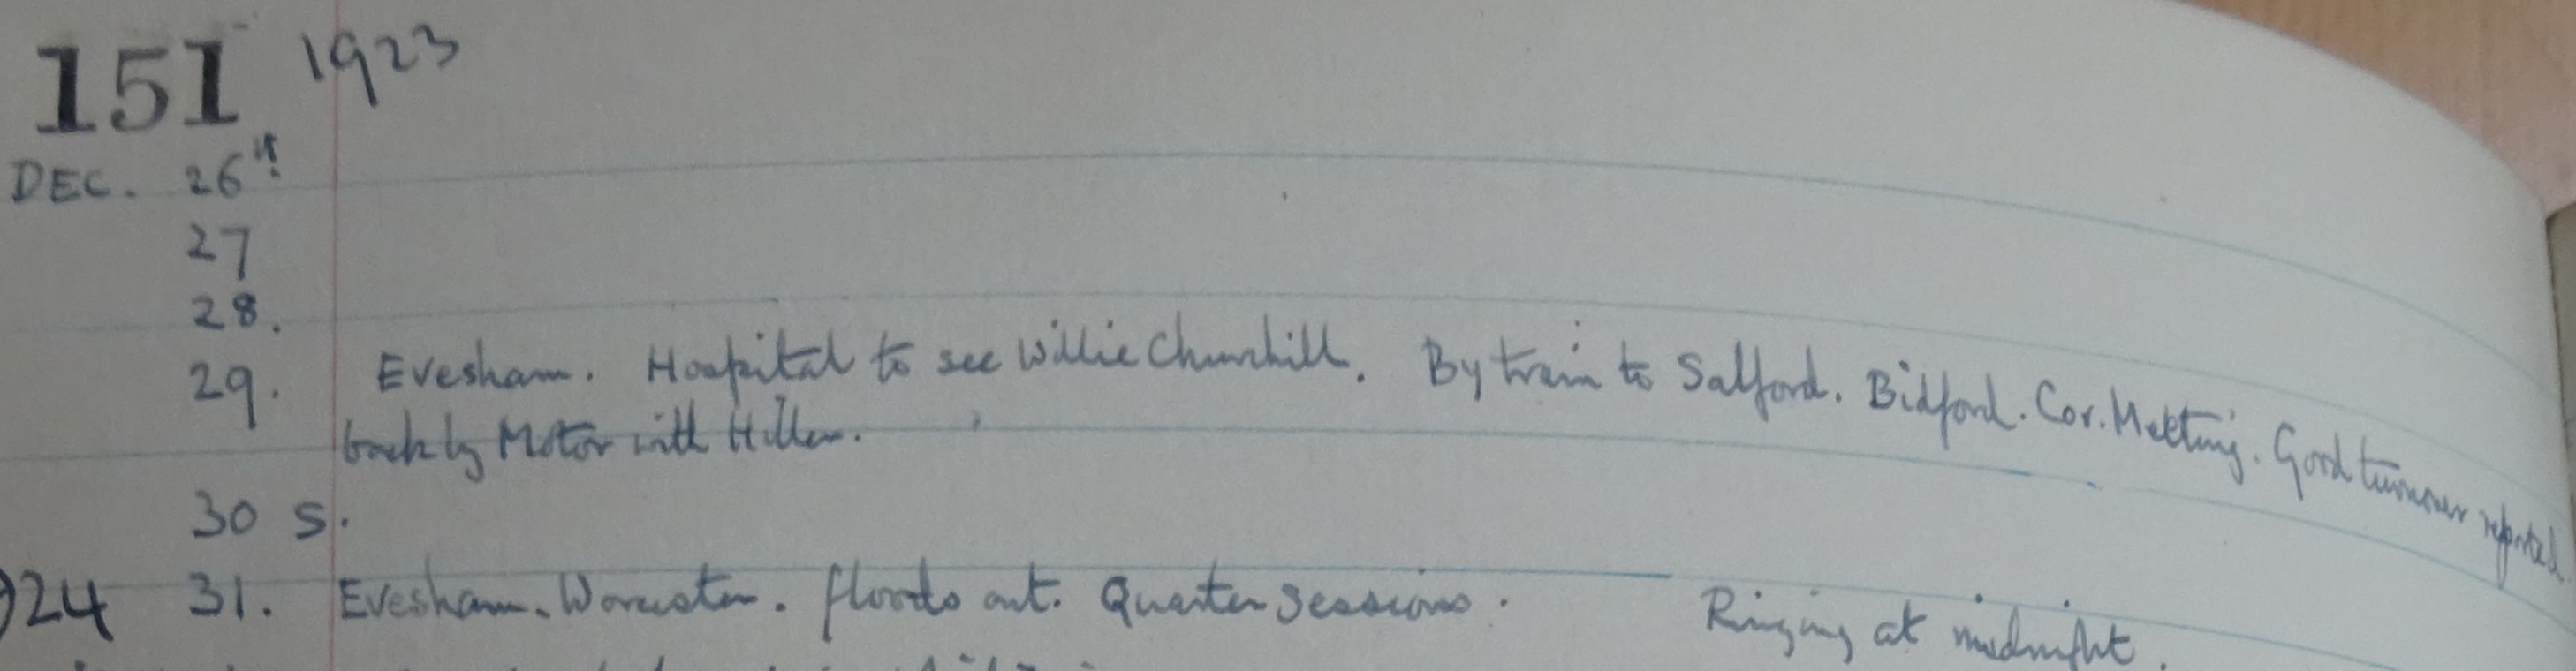 151 1923
DEC. 26th
27
28.
29. Evesham. Hospital to see Willie Churchill. By train to Salford. Bidford. Cor. Meeting. Good turnover reported.
back by Motor with
30 S.
1924 31. Evesham. Worcester. floods out. Quarter Sessions. Ringing at midnight.